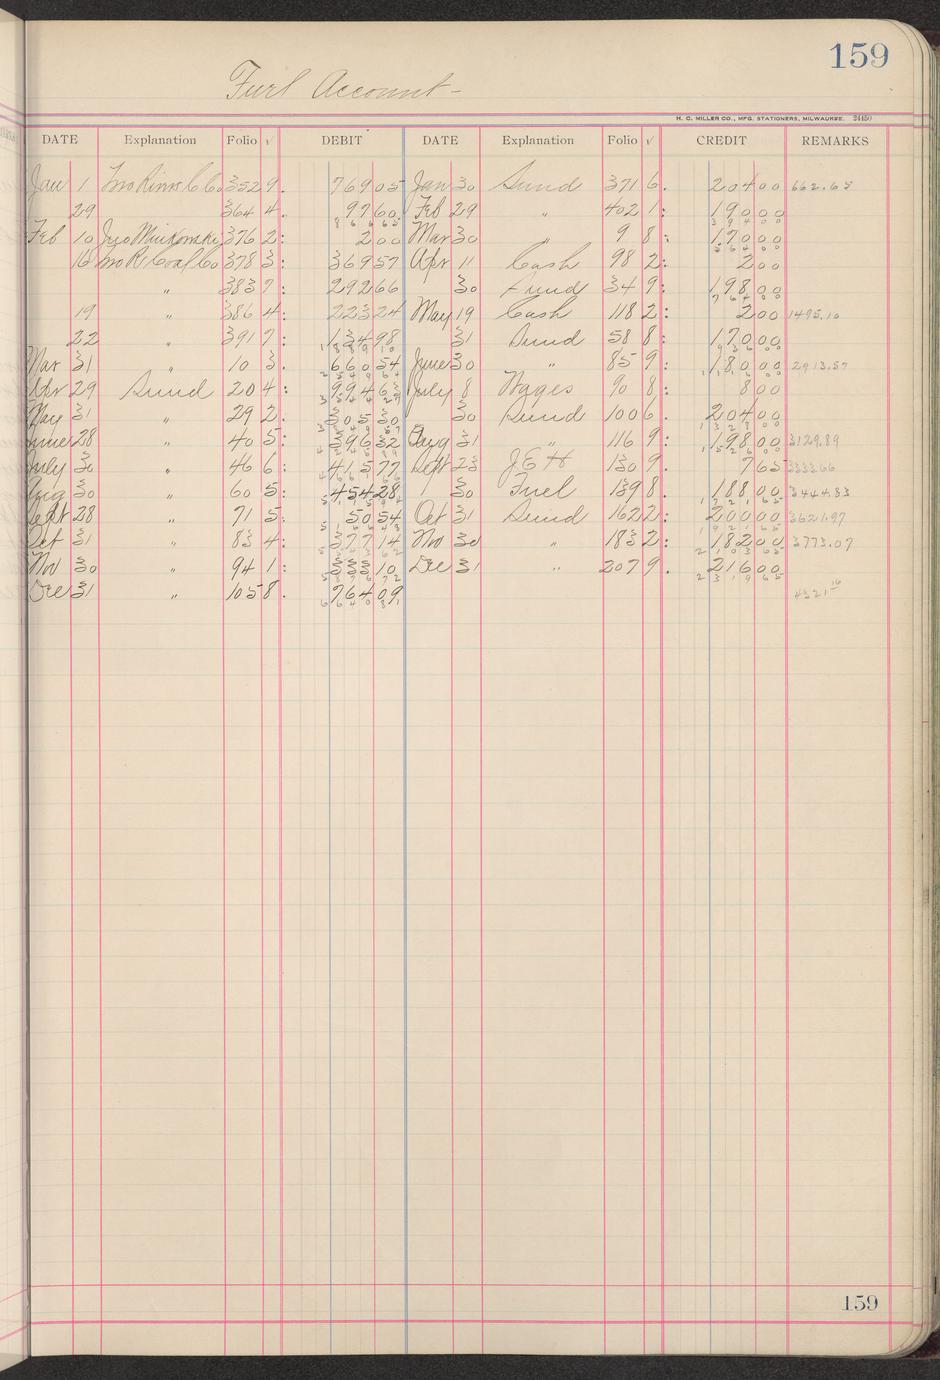 159
Fuel Account -
H. C. MILLER CO., MFG. STATIONERS, MILWAUKEE. 24450
DATE Explanation Folio √ DEBIT DATE Explanation Folio √ CREDIT REMARKS
Jan 1 352 9. 769 05 Jan 30 Sund 371 6. 204 00 662.65
29 364 4. 97 60 Feb 29 " 402 1: 190 00
866 65 394 00
Feb 10 Jno 376 2: 2 00 Mar 30 " 9 8: 170 00
564 00
16 Jno R Coal Co 378 3: 369 57 Apr 11 Cash 98 2: 2 00
" 383 7: 292 66 30 Sund 34 9: 198 00
764 00
19 " 386 4: 223 24 May 19 Cash 118 2: 2 00 1495.10
22 " 391 7: 134 98 31 Sund 58 8: 170 00
1889 10 936 00
Mar 31 " 10 3. 660 54 June 30 " 85 9: 180 00 2913.57
Apr 29 Sund 20 4: 994 63 July 8 Wages 90 8: 8 00
May 31 " 29 2. 305 30 30 Sund 100 6. 204 00
1328 00
June 28 " 40 5: 396 32 Aug 31 " 116 9: 198 00 3129.89
July 30 " 46 6: 415 77 Sept 23 J E H 130 9. 7 65 3333.66
Aug 30 " 60 5: 454 28 30 Fuel 139 8. 188 00 3444.83
Sept 28 " 71 5: 50 54 Oct 31 Sund 162 2: 200 00 3621.97
Oct 31 " 83 4: 377 14 Nov 30 " 183 2: 182 00 3773.07
2103 65
Nov 30 " 94 1: 333 10 Dec 31 " 207 9. 216 00
5876 72 2319 65
Dec 31 " 105 8. 764 09 4321 16
6640 81
159